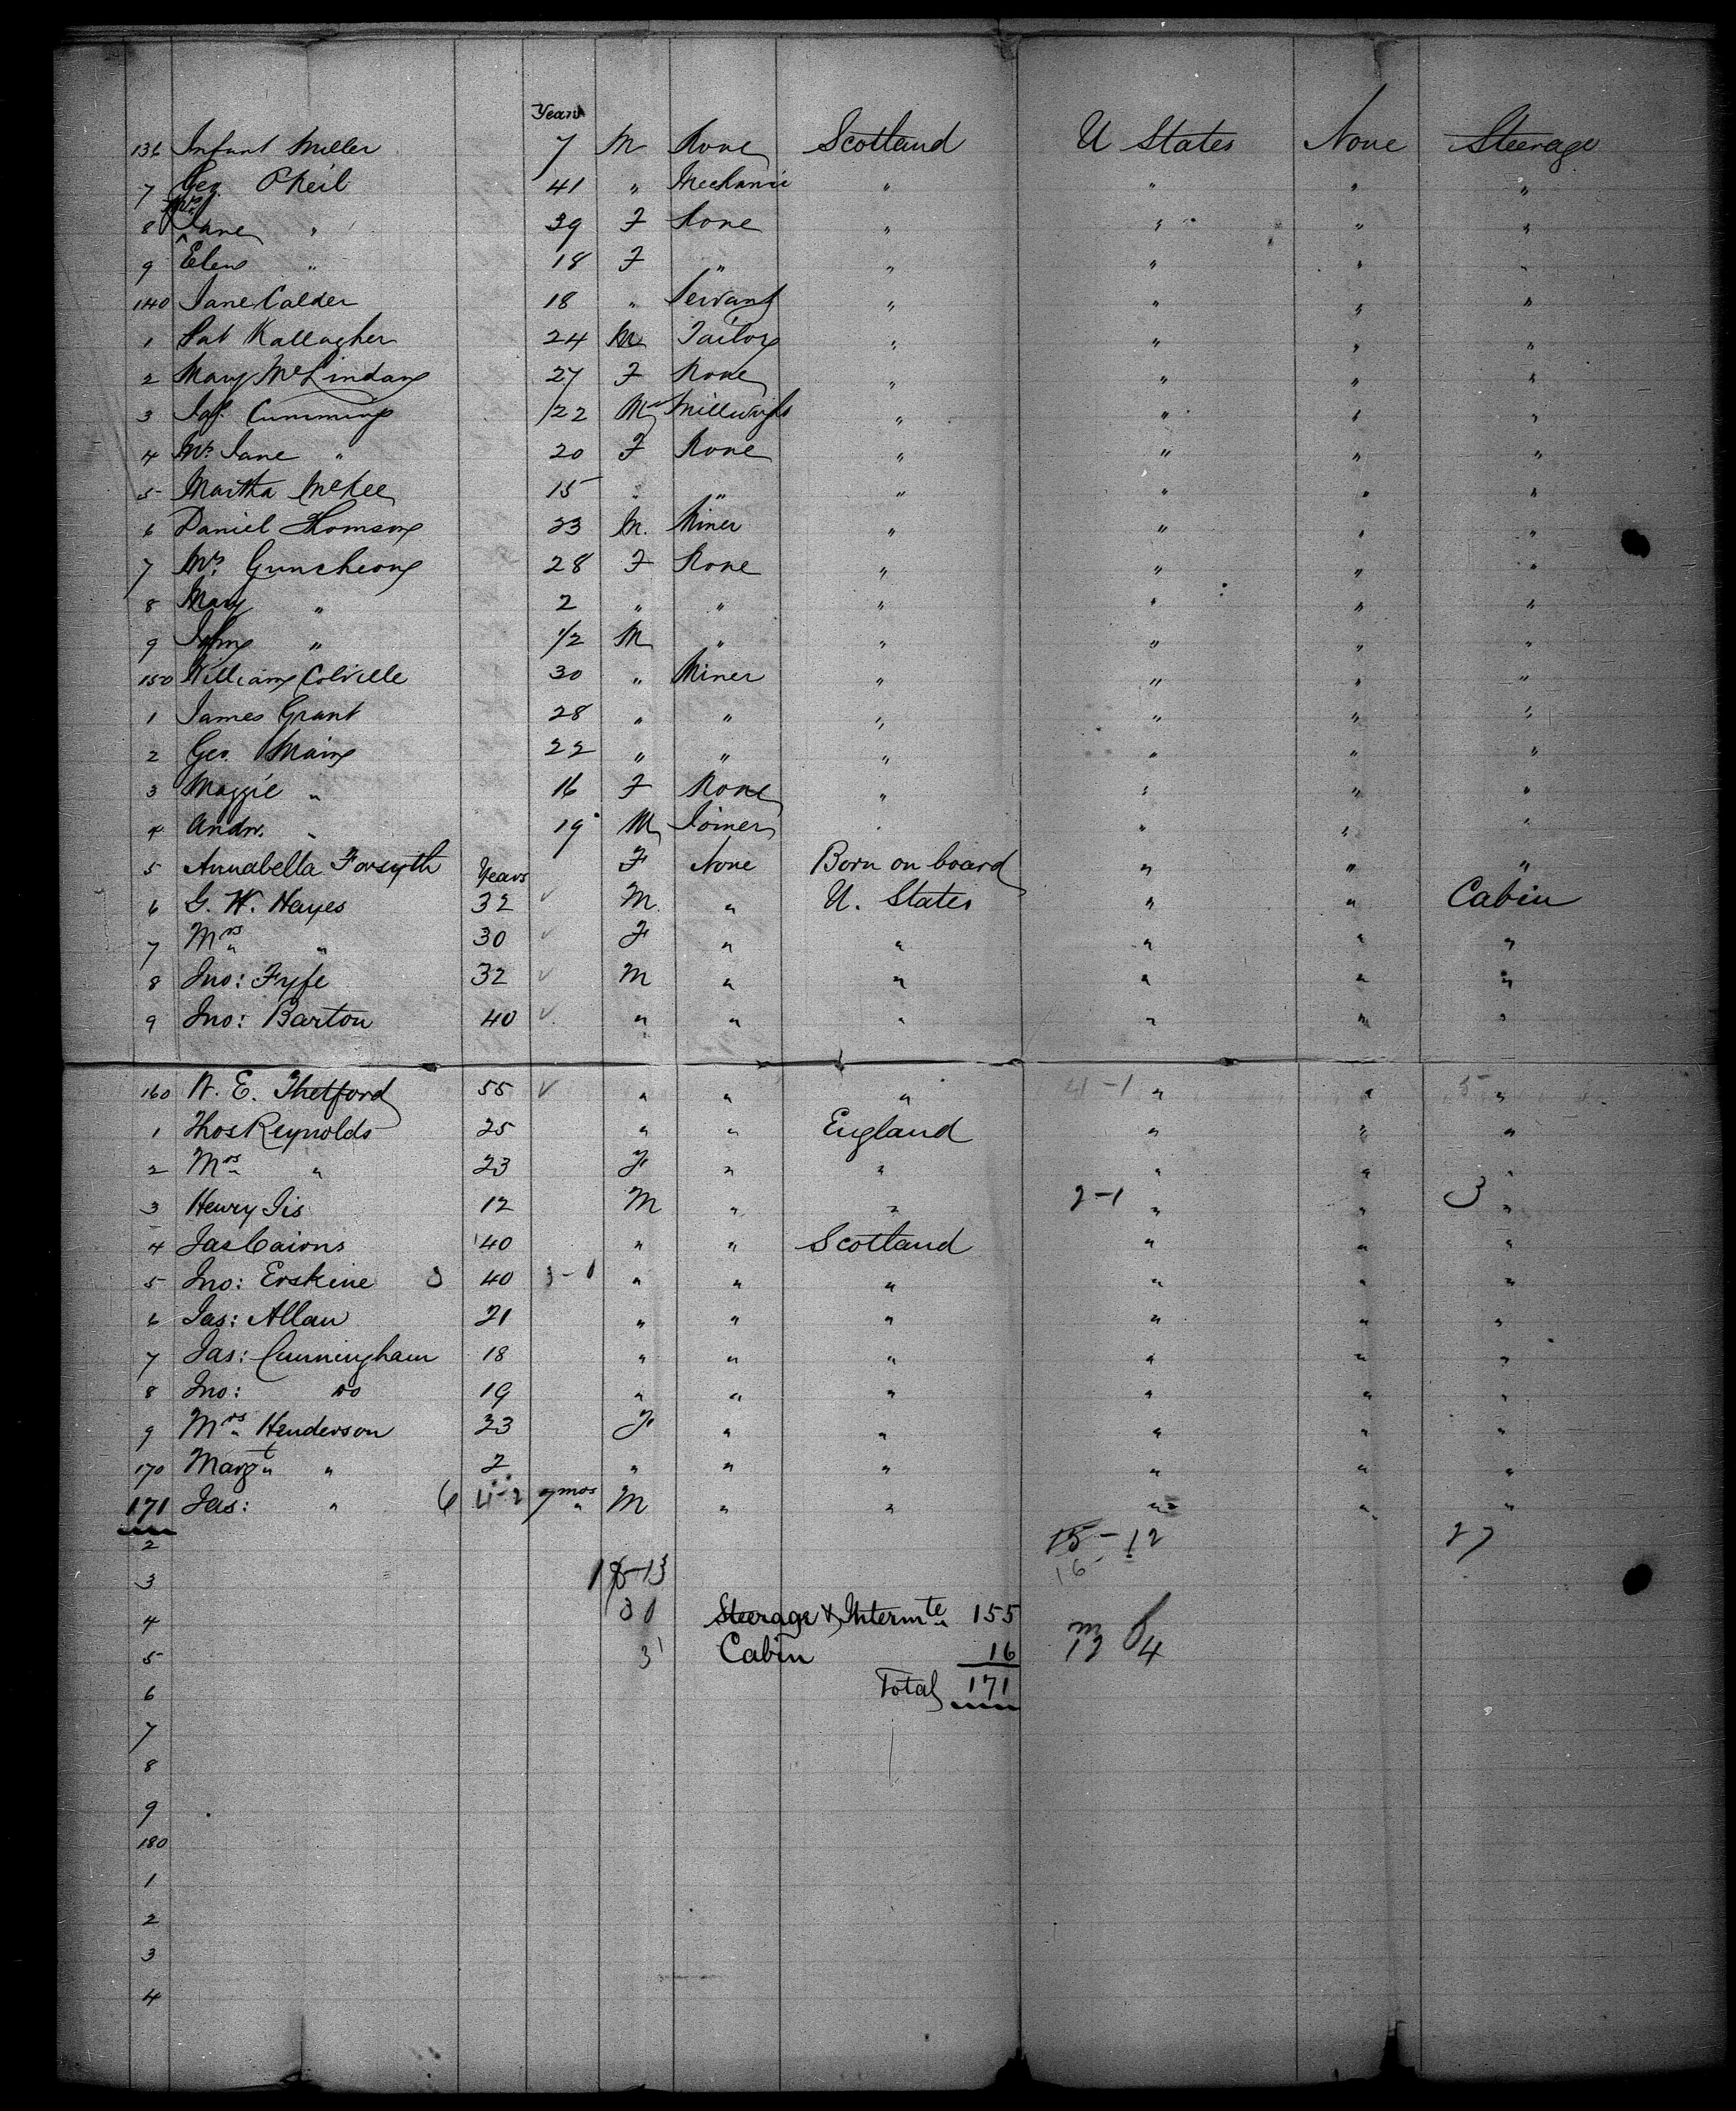 Years
136 Infant Miller 7 M None Scotland U States None Steerage
7 Geo. O'Neil 41 " Mechanic " " " "
8 Mrs. Jane " 39 F None " " " "
9 Elen " 18 F " " " " "
140 Jane Calder 18 " Servant " " " "
1 Pat Kallagher 24 M Tailor " " " "
2 Mary McLindan 27 F None " " " "
3 Jas. Cumming 22 M Millwright " " " "
4 Mrs. Jane " 20 F None " " " "
5 Martha McKee 15 " " " " " "
6 Daniel Thomson 23 M. Miner " " " "
7 Mrs. Guncheon 28 F None " " " "
8 Mary " 2 " " " " " "
9 John " 1/2 M " " " " "
150 William Colville 30 " Miner " " " "
1 James Grant 28 " " " " " "
2 Geo. Main 22 " " " " " "
3 Maggie " 16 F None " " " "
4 Andw. " 19 M Joiner " " " "
5 Annabella Forsyth F None Born on board " " "
Years
6 G. W. Hayes 32 M. " U. States " " Cabin
7 Mrs " 30 F " " " " "
8 Jno: Fyfe 32 M " " " " "
9 Jno: Barton 40 " " " " " "
160 W. E. Thetford 55 " " " 4-1 " " 5 "
1 Thos Reynolds 25 " " England " " "
2 Mrs " 23 F " " " " "
3 Henry Jis 12 M " " 2-1 " " 3 "
4 Jas Cairns 40 " " Scotland " " "
5 Jno: Erskine 3 40 3-0 " " " " " "
6 Jas: Allan 21 " " " " " "
7 Jas: Cunningham 18 " " " " " "
8 Jno: Do 19 " " " " " "
9 Mrs Henderson 23 F " " " " "
170 Margt " 2 " " " " " "
171 Jas: " 6 4-2 7 mos M " " " " "
2 15-12 27
3 18-13 16
4 30 Steerage & Intermte 155
5 31 Cabin 16
6 Total 171
7
8
9
180
1
2
3
4